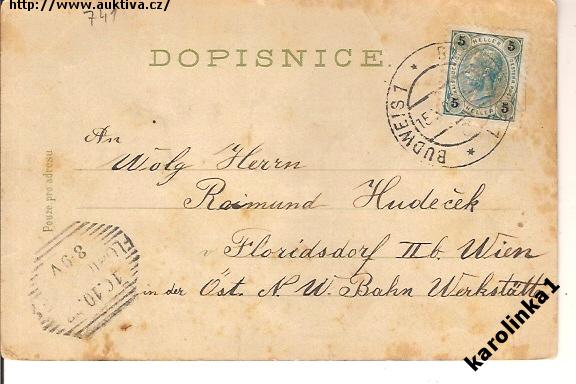 http://www.auktiva.cz/
741
DOPISNICE.
5 HELLER 5
5 HELLER 5
BUDWEIS 1
An
Wolg Herrn
Raimund Hudeček
Floridsdorf II b. Wien
in der Öst. N. W. Bahn Werkstätte
Pouze pro adresu
10.10.
8-9 V
karolinka1